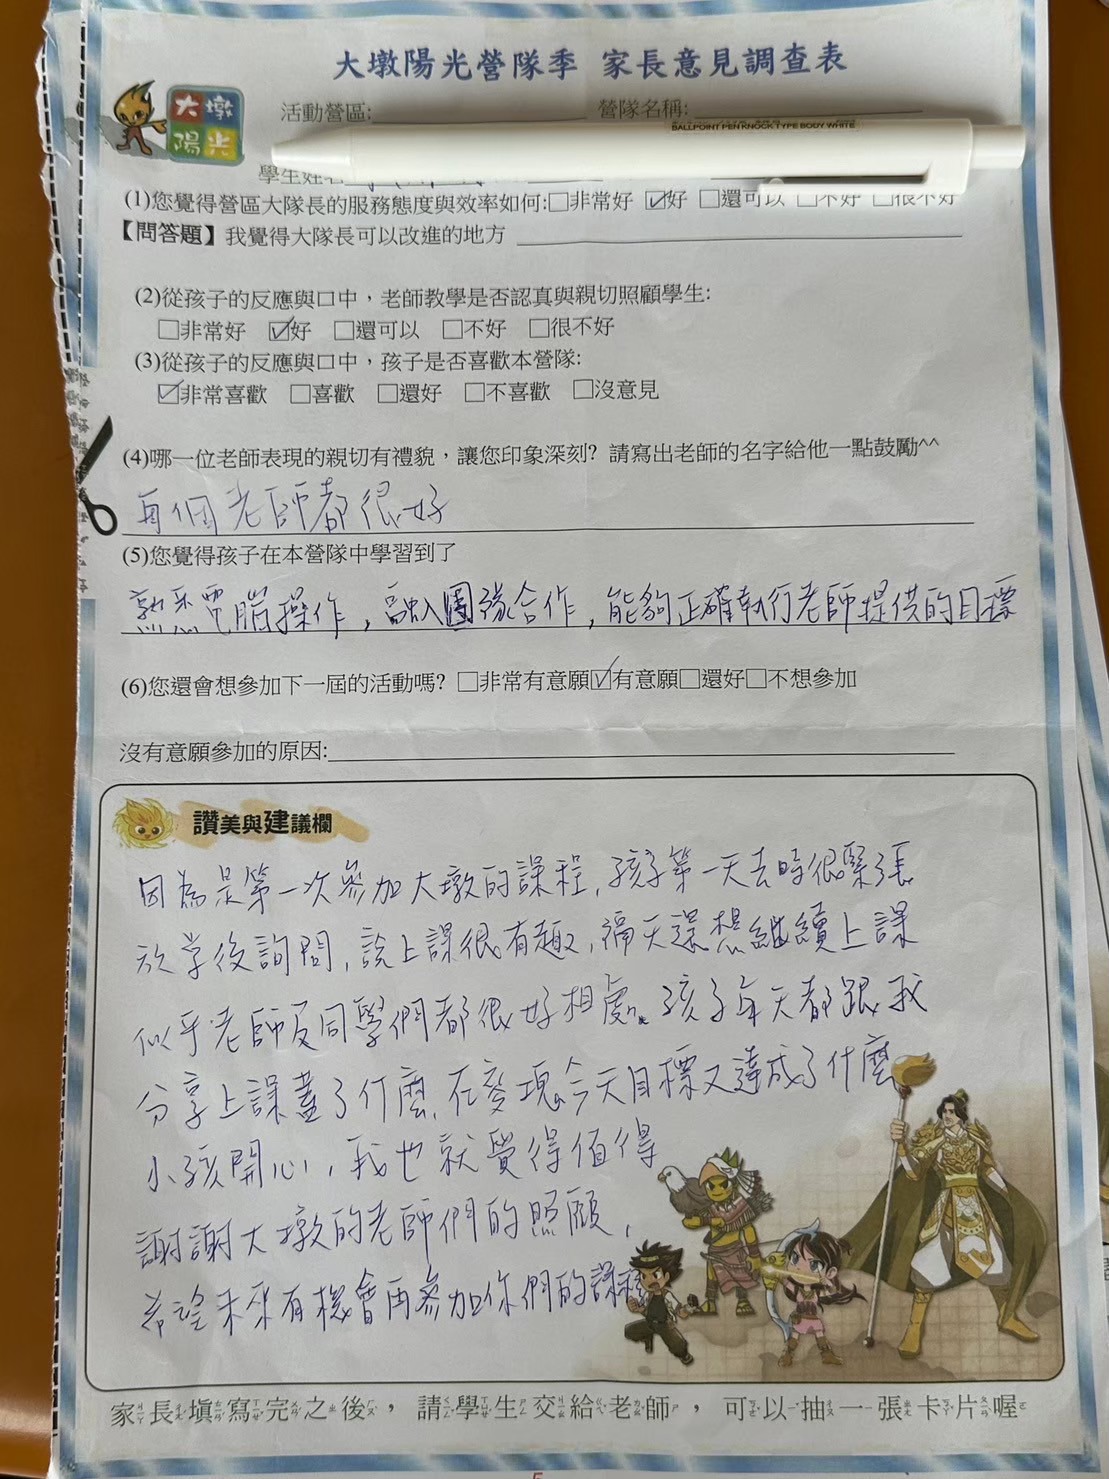 大墩陽光營隊季 家長意見調查表
大墩
陽光
活動營區: 營隊名稱:
BALLPOINT PEN KNOCK TYPE BODY WHITE
學生姓名
(1)您覺得營區大隊長的服務態度與效率如何:□非常好 ☑好 □還可以 □不好 □很不好
【問答題】我覺得大隊長可以改進的地方
(2)從孩子的反應與口中，老師教學是否認真與親切照顧學生:
□非常好 ☑好 □還可以 □不好 □很不好
(3)從孩子的反應與口中，孩子是否喜歡本營隊:
☑非常喜歡 □喜歡 □還好 □不喜歡 □沒意見
(4)哪一位老師表現的親切有禮貌，讓您印象深刻? 請寫出老師的名字給他一點鼓勵^^
每個老師都很好
(5)您覺得孩子在本營隊中學習到了
熟悉電腦操作，融入團隊合作，能夠正確執行老師提供的目標
(6)您還會想參加下一屆的活動嗎? □非常有意願☑有意願□還好□不想參加
沒有意願參加的原因:
讚美與建議欄
因為是第一次參加大墩的課程，孩子第一天去時很緊張
放学後詢問，說上課很有趣，隔天還想繼續上課
似乎老師及同學們都很好相處。孩子每天都跟我
分享上課畫了什麼，在麥塊今天目標又達成了什麼
小孩開心，我也就覺得值得
謝謝大墩的老師們的照顧，
希望未來有機會再參加你們的課程
家長填寫完之後，請學生交給老師，可以抽一張卡片喔